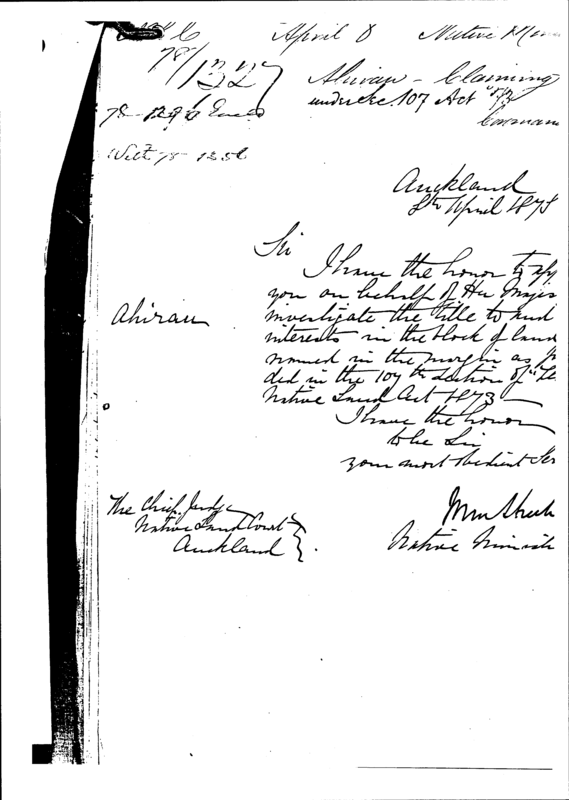 April 8 Native
78/1327
Ahirau - Claiming
under Sec. 107 Act '73
78-
With 78-1256
Auckland
8th April 1878
Sir
I have the honor to
you on behalf of Her Majes
investigate the title to and
interests in the block of land
Ahirau
named in the margin as
ded in the 107th section of "The
Native Land Act 1873
I have the honor
to be Sir
your most obedient Ser
The Chief Judge
Native Land Court
Auckland
Native Minist